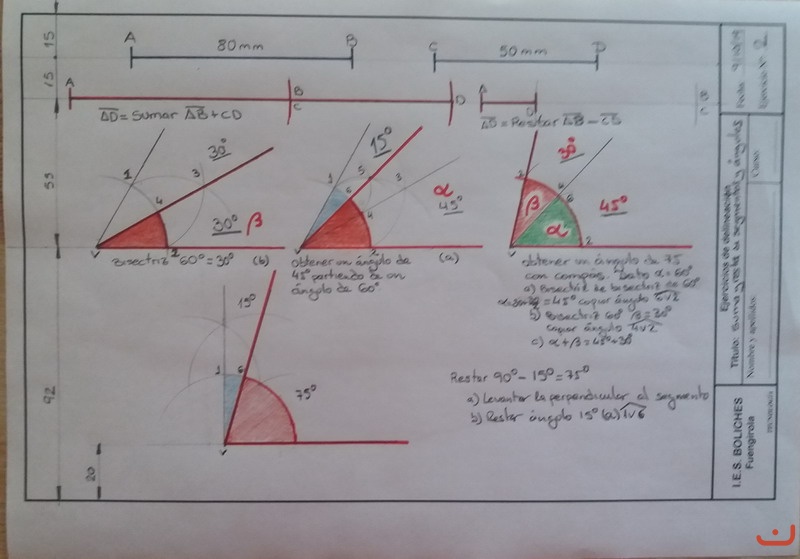 A 80mm B
C 50mm D
A B C D
A D
AD = Sumar AB + CD
AD = Restar AB - CD
15
15
53
92
20
30°
1 4 3
30° β
V 2
Bisectriz 60° = 30° (b)
15°
1 5 6 3 4
α
45°
V 2
Obtener un ángulo de
45° partiendo de un (a)
ángulo de 60°
30°
β
45°
α
V 2
obtener un ángulo de 75
con compás. Dato α = 60°
a) Bisectriz de bisectriz de 60°
= 45° copiar ángulo 6V2
b) Bisectriz 60° β = 30°
copiar ángulo 4V2
c) α + β = 45° + 30°
15°
1 6
75°
V
Restar 90° - 15° = 75°
a) Levantar la perpendicular al segmento
b) Restar ángulo 15° (a) 1V6
Fecha:
Ejercicio Nº 2
Ejercicios de delineación
Título: Suma y resta de segmentos y ángulos
Nombre y apellidos:
Curso:
I.E.S. BOLICHES
Fuengirola